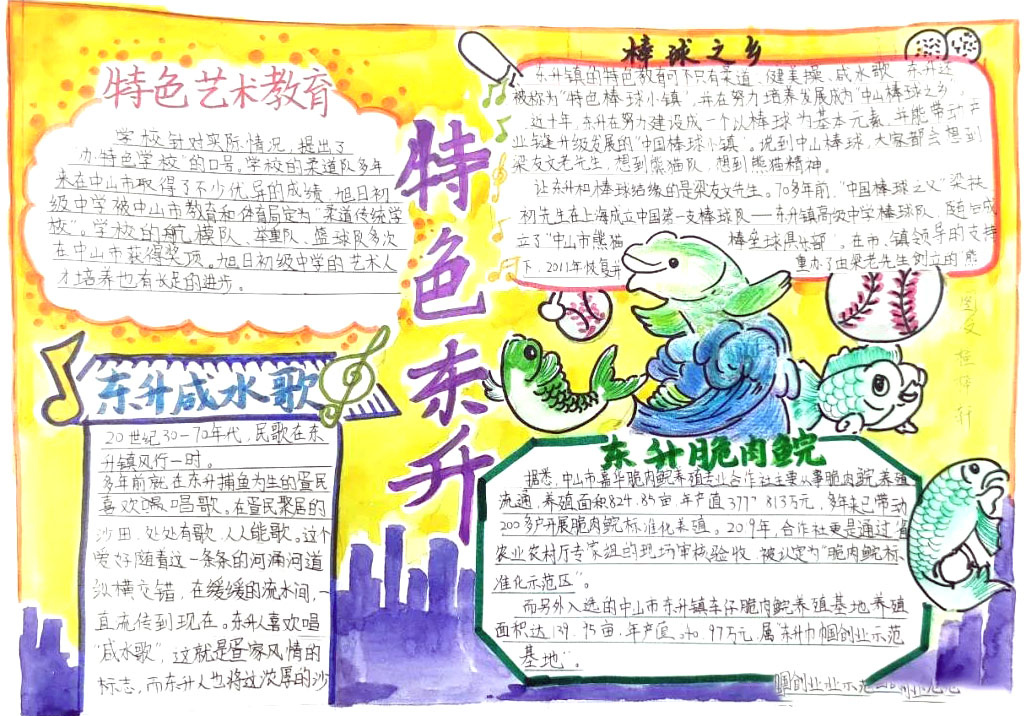 特色艺术教育
学校针对实际情况，提出了
"办特色学校"的口号。学校的柔道队多年
来在中山市取得了不少优异的成绩，旭日初
级中学被中山市教育和体育局定为"柔道传统学
校"。学校的航模队、举重队、篮球队多次
在中山市获得奖项。旭日初级中学的艺术人
才培养也有长足的进步。
特色东升
棒球之乡
东升镇的特色教育可不只有柔道、健美操、咸水歌，东升还
被称为"特色棒球小镇"，并在努力培养发展成为"中山棒球之乡"，
近十年，东升在努力建设成一个以棒球为基本元素，并能带动产
业转建升级发展的"中国棒球小镇"。说到中山棒球，大家都会想到
梁友文老先生，想到熊猫队，想到熊猫精神。
让东升和棒球结缘的是梁友文先生。70多年前，"中国棒球之父"梁扶
初先生在上海成立中国第一支棒球队——东升镇高级中学棒球队、随后成
立了"中山市熊猫 棒垒球俱乐部"。在市、镇领导的支持
下，2011年恢复并 重办了由梁老先生创立的"熊
图文
东升咸水歌
20世纪30-70年代，民歌在东
升镇风行一时。
多年前就在东升捕鱼为生的疍民
喜欢喝唱歌。在疍民聚居的
沙田，处处有歌，人人能歌。这个
爱好随着这一条条的河涌河道
纵横交错，在缓缓的流水间，一
直流传到现在。东升人喜欢唱
"咸水歌"，这就是疍家风情的
标志，而东升人也将这浓厚的沙
东升脆肉鲩
据悉，中山市嘉华脆肉鲩养殖专业合作社主要从事脆肉鲩养殖
流通，养殖面积824.85亩，年产值377 815万元，多年来已带动
200多户开展脆肉鲩标准化养殖。2019年，合作社更是通过省
农业农村厅专家组的现场审核验收，被认定为"脆肉鲩标
准化示范区"。
而另外入选的中山市东升镇车仔脆肉鲩养殖基地养殖
面积达139.95亩，年产值 40.97万元，属"东升巾帼创业示范
基地"。
帼创业业示范